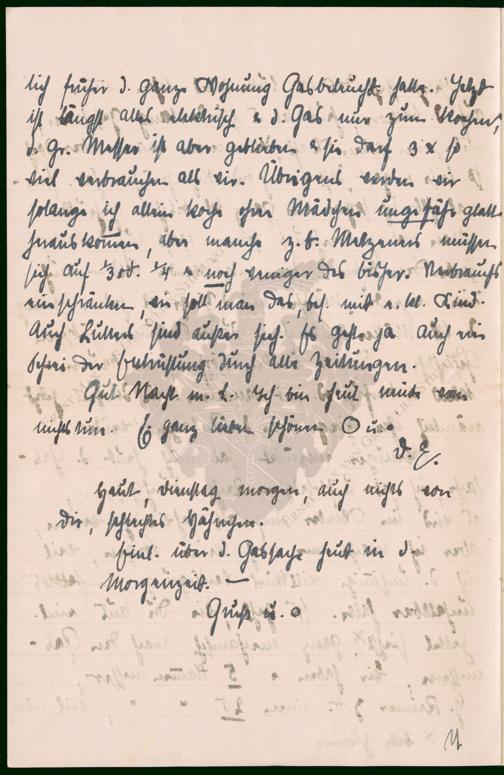 lich früher d. ganze Wohnung Gasbeleucht. hatte. Jetzt
ist längst alles elektrisch & d. Gas nur zum Kochen,
d. gr. Messer ist aber geblieben & sie darf 3 x so
viel verbrauchen als wir. Übrigens werden wir
solange ich allein koche ohne Mädchen ungefähr glatt
herauskommen, aber manche z. b. Metzeners müssen
sich auf 1/3 od. 1/4 & noch weniger des bisher. Verbrauchs
einschränken, wie soll man das, bes. mit e. kl. Kind.
Auch Lutters sind außer sich. Es geht ja auch ein
Schrei der Entrüstung durch alle Zeitungen.
Gut Nacht m. L. Ich bin heut müde von
nichts tun. E ganz lieben schönen O u.
D. E.
Heut, Dienstag morgen, auch nichts von
Dir, schlechtes Hähnchen.
Einl. über d. Gassache heut in d.
Morgenzeit. —
Gruß u. o